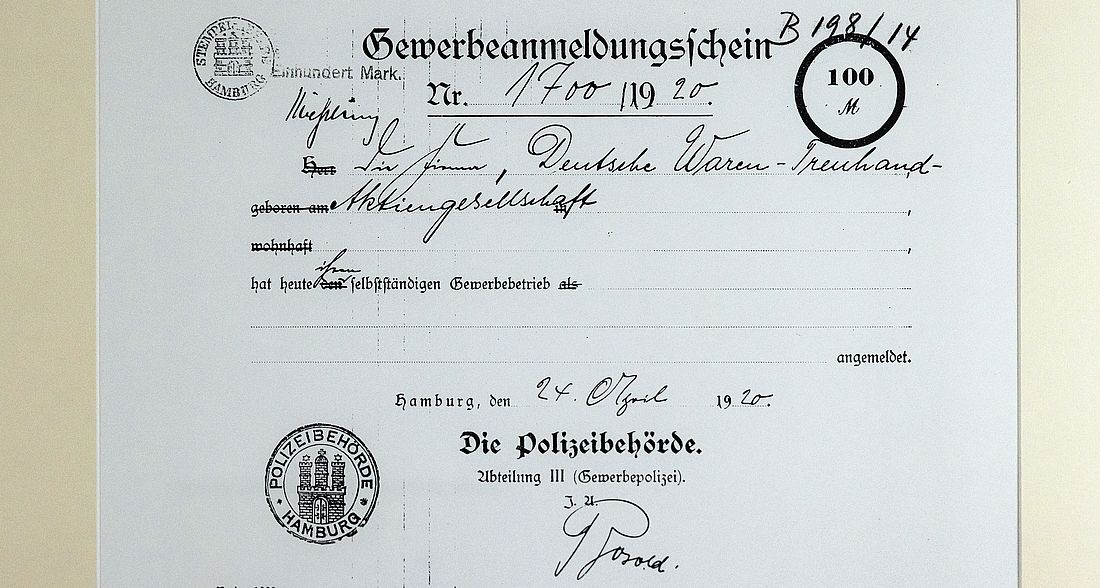 B 198/14
STEMPEL-
HAMBURG
Gewerbeanmeldungsschein
100
M
Einhundert Mark.
Nr. 1700/1920.
Herr Die Firma, Deutsche Waren-Treuhand-
geboren am Aktiengesellschaft in ,
wohnhaft ,
ihren
hat heute den selbstständigen Gewerbebetrieb als
angemeldet.
Hamburg, den 24. April 1920.
Die Polizeibehörde.
Abteilung III (Gewerbepolizei).
J. A.
POLIZEIBEHÖRDE
HAMBURG